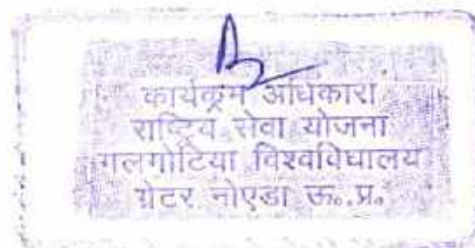 कार्यक्रम अधिकारी
राष्ट्रिय सेवा योजना
गलगोटिया विश्वविघालय
ग्रेटर नोएडा ऊ.प्र.